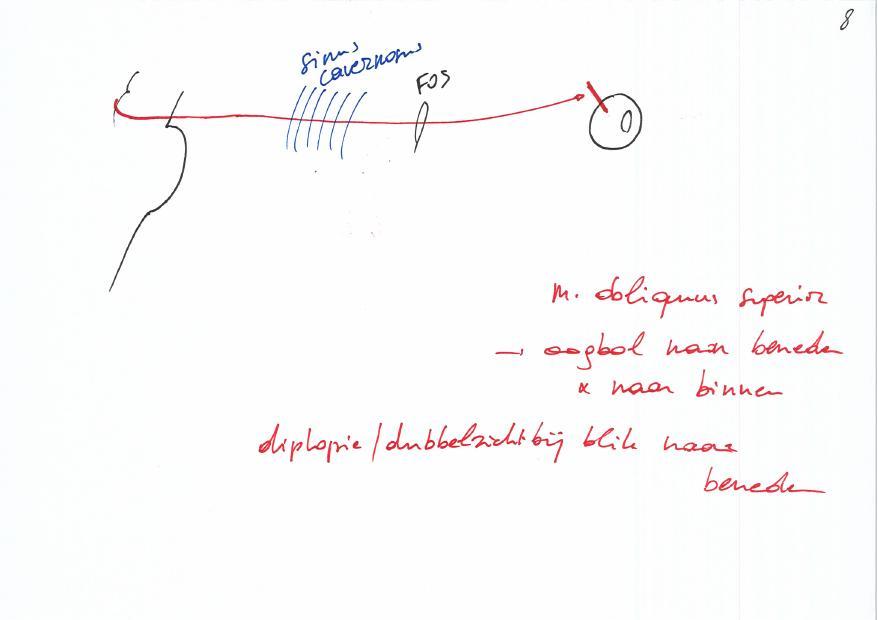 8
sinus
cavernosus
FOS
M. obliquus superior
→ oogbol naar beneden
& naar binnen
diplopie/dubbelzicht bij blik naar
beneden